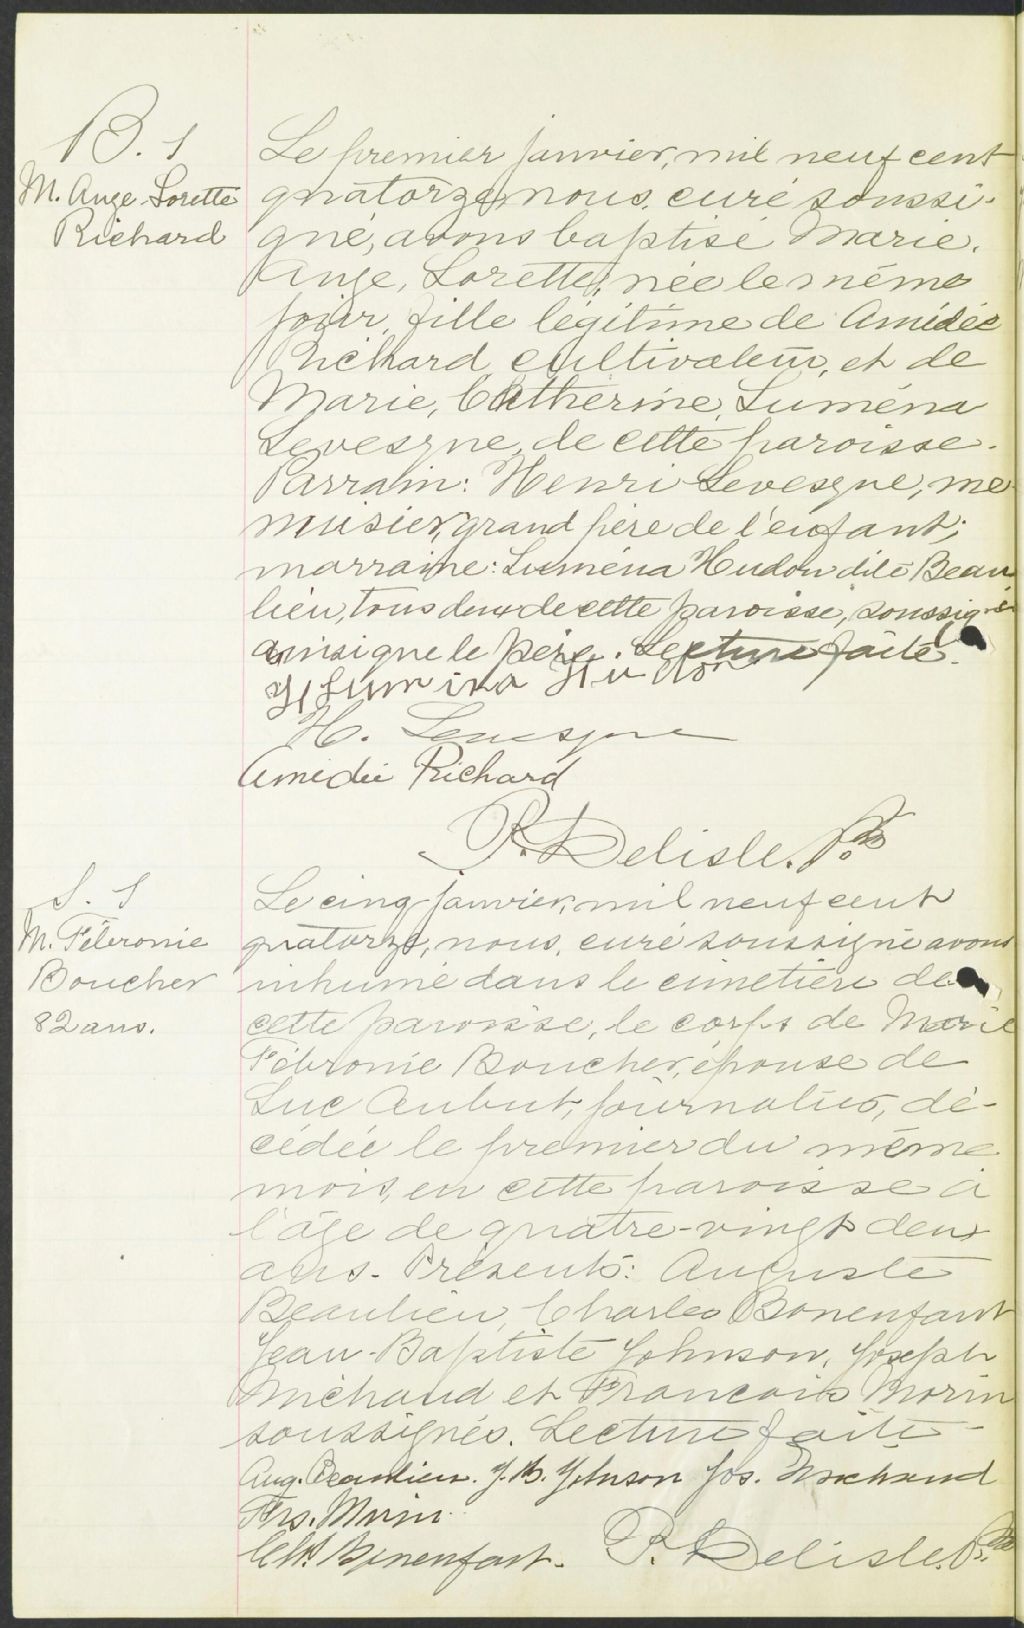 B. 1
M. Ange-Lorette
Richard
Le premier janvier, mil neuf cent
quatorze, nous, curé soussi-
gné, avons baptisé Marie,
Ange, Lorette, née le même
jour, fille légitime de Amédée
Richard, cultivateur, et de
Marie, Catherine, Luména
Levesque, de cette paroisse.
Parrain: Henri Levesque, me-
nuisier, grand père de l'enfant;
marraine: Luména Hudon dite Beau
lieu, tous deux de cette paroisse, soussignés
ainsi que le père. Lecture faite.
Lumina Hudon
H. Levesque
Amédée Richard
P. Delisle, Ptre
S. 1
M. Fébronie
Boucher
82 ans.
Le cinq janvier, mil neuf cent
quatorze, nous, curé soussigné avons
inhumé dans le cimetière de
cette paroisse, le corps de Marie
Fébronie Boucher, épouse de
Luc Aubut, journalier, dé-
cédée le premier du même
mois, en cette paroisse à
l'âge de quatre-vingt deux
ans. Présents: Auguste
Beaulieu, Charles Bonenfant
Jean-Baptiste Johnson, Joseph
Michaud et François Morin
soussignés. Lecture faite
Aug. Beaulieu. J. B. Johnson Jos. Michaud
Frs. Morin
Chs. Bonenfant. P. Delisle, Ptre